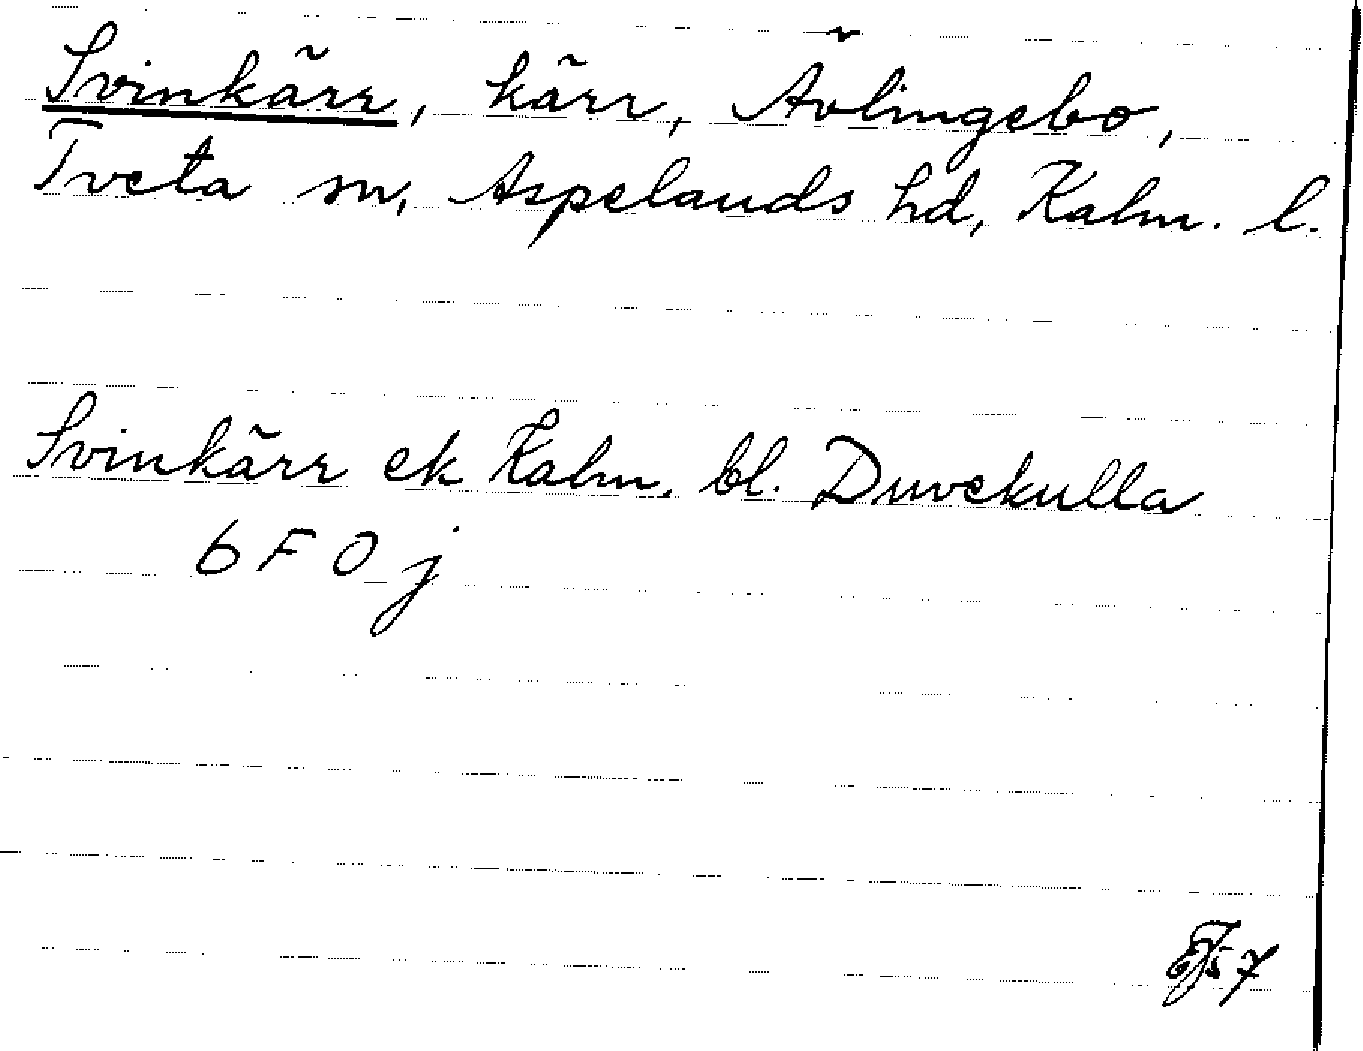 Svinkärr, kärr, Ävlingebo,
Tveta sn, Aspelands hd, Kalm. l.
Svinkärr ek Kalm. bl. Duvekulla
6 F 0 j